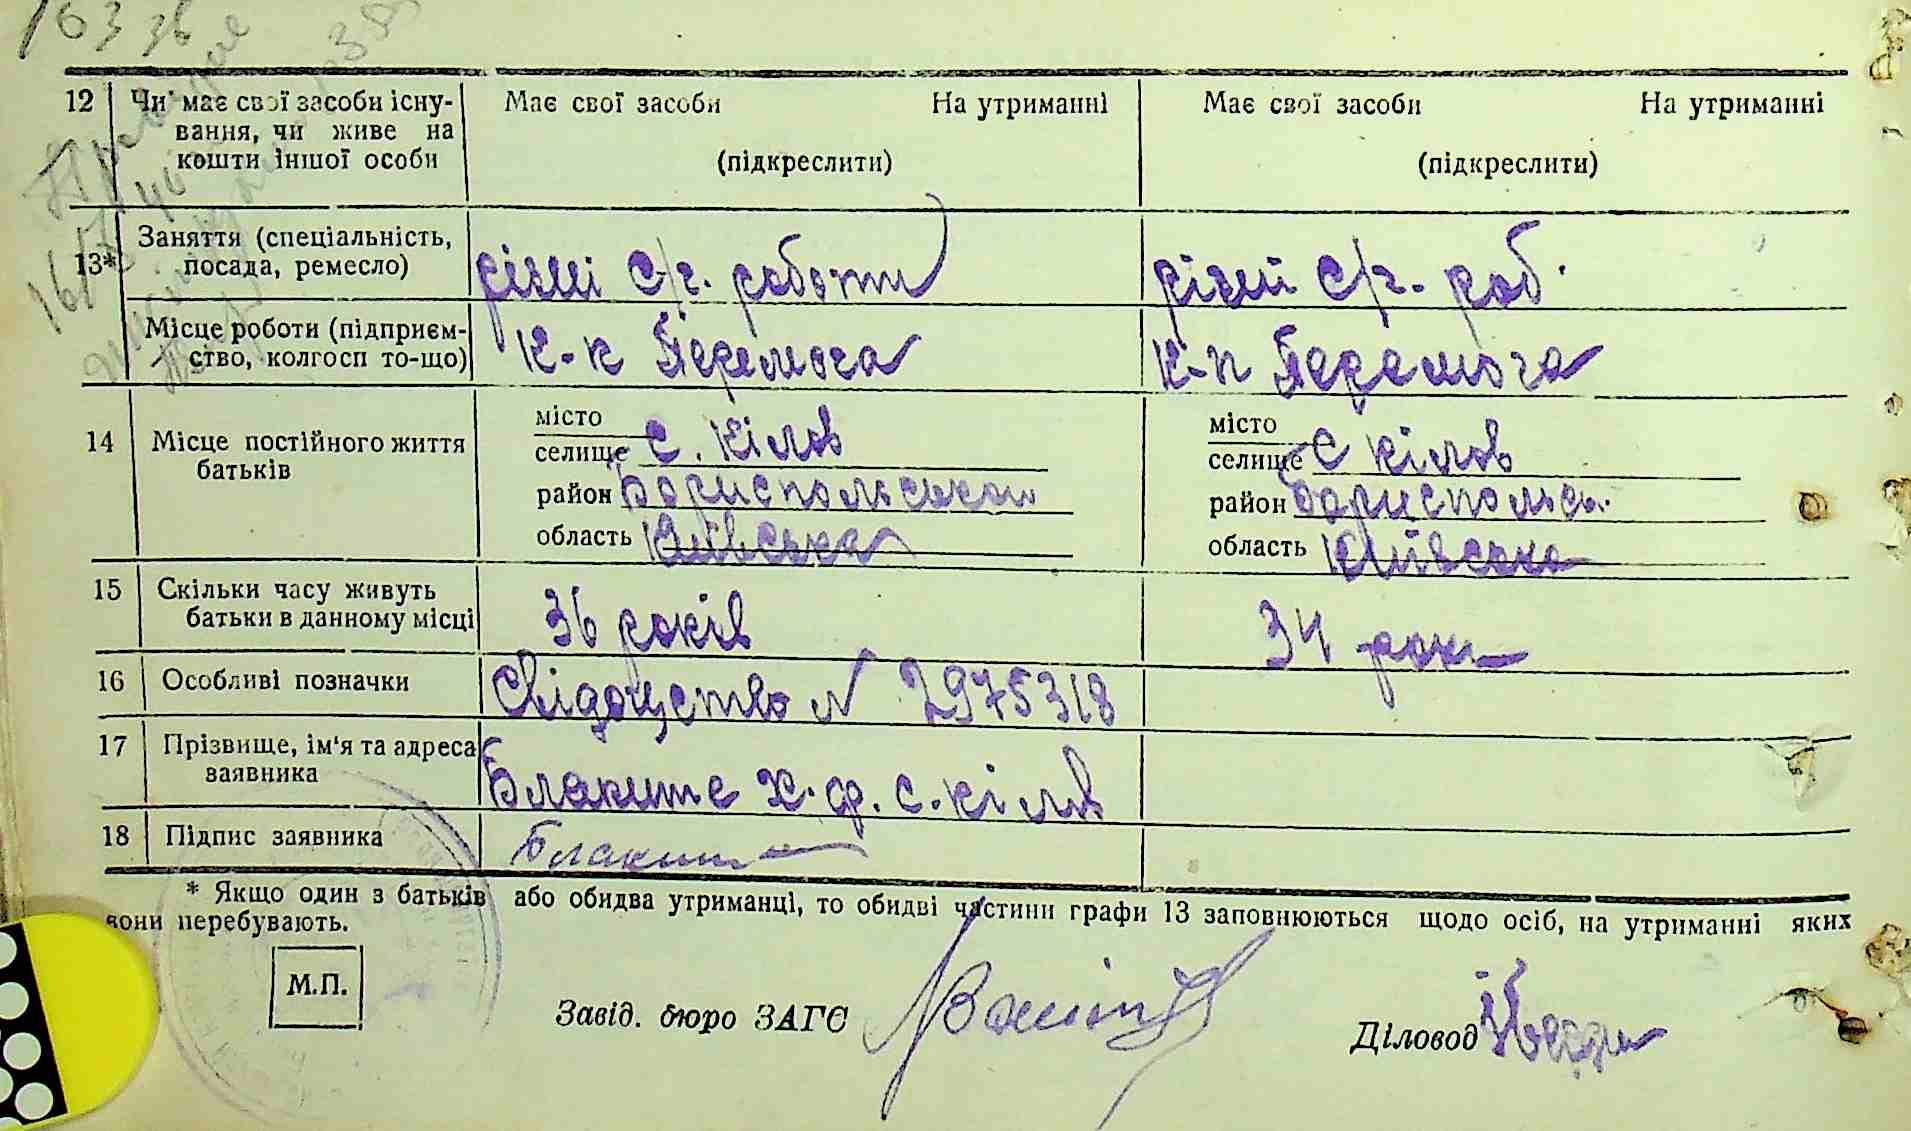 163 зв
12 Чи має свої засоби існу- Має свої засоби На утриманні Має свої засоби На утриманні
вання, чи живе на
кошти іншої особи (підкреслити) (підкреслити)
13* Заняття (спеціальність,
посада, ремесло) різні с/г. роботи різні с/г. роб.
Місце роботи (підприєм-
ство, колгосп то-що) К-к Перемога К-п Перемога
14 Місце постійного життя
батьків
місто місто
селище с. Кілов селище с Кілов
район Бориспольський район Бориспольсь.
область Київська область Київська
15 Скільки часу живуть
батьки в данному місці 36 років 34 роки
16 Особливі позначки Свідоцтво N 2975318
17 Прізвище, ім'я та адреса
заявника Блаките Х. ф. с. кілов
18 Підпис заявника Блакит
* Якщо один з батьків або обидва утриманці, то обидві частини графи 13 заповнюються щодо осіб, на утриманні яких
вони перебувають.
М.П.
Завід. бюро ЗАГС
Діловод